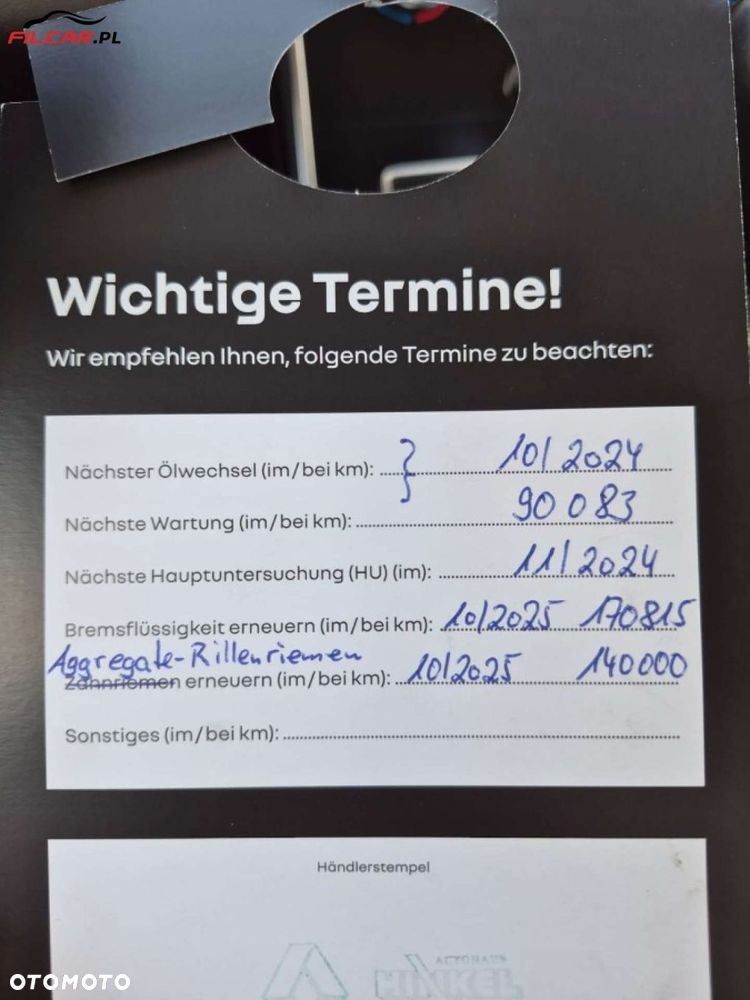 FILCAR.PL
Wichtige Termine!
Wir empfehlen Ihnen, folgende Termine zu beachten:
Nächster Ölwechsel (im/bei km): } 10/2024
Nächste Wartung (im/bei km): 90 083
Nächste Hauptuntersuchung (HU) (im): 11/2024
Bremsflüssigkeit erneuern (im/bei km): 10/2025 170815
Aggregate-Rillenriemen
Zahnriemen erneuern (im/bei km): 10/2025 140000
Sonstiges (im/bei km):
Händlerstempel
AUTOHAUS
HINKEL
OTOMOTO